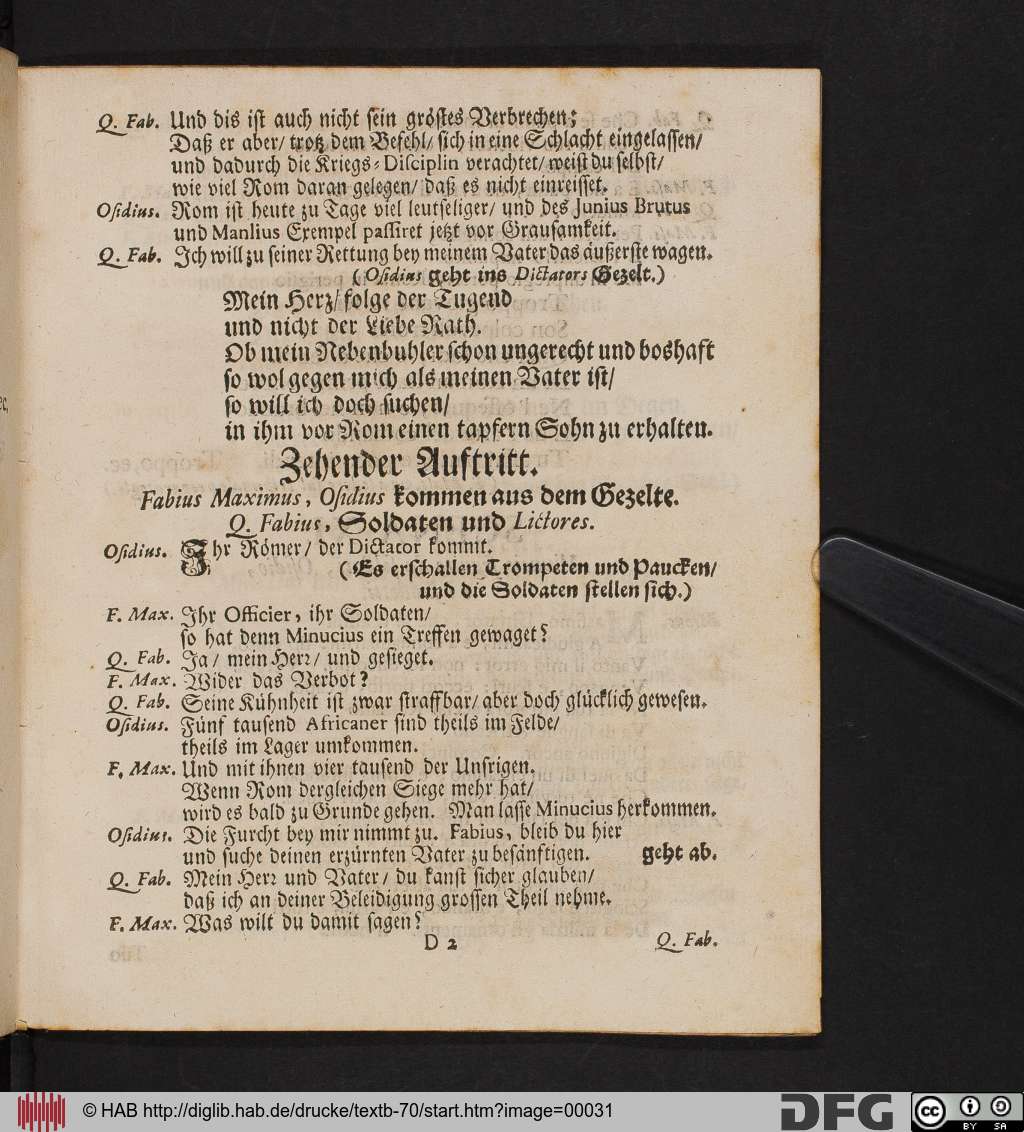 Q. Fab. Und dis ist auch nicht sein gröstes Verbrechen;
Daß er aber/ trotz dem Befehl/ sich in eine Schlacht eingelassen/
und dadurch die Kriegs-Disciplin verachtet/ weist du selbst/
wie viel Rom daran gelegen/ daß es nicht einreisset.
Osidius. Rom ist heute zu Tage viel leutseliger/ und des Junius Brutus
und Manlius Exempel passiret jetzt vor Grausamkeit.
Q. Fab. Ich will zu seiner Rettung bey meinem Vater das äußerste wagen.
(Osidius geht ins Dictators Gezelt.)
Mein Herz/ folge der Tugend
und nicht der Liebe Rath.
Ob mein Nebenbuhler schon ungerecht und boshaft
so wol gegen mich als meinen Vater ist/
so will ich doch suchen/
in ihm vor Rom einen tapfern Sohn zu erhalten.
Zehender Auftritt.
Fabius Maximus, Osidius kommen aus dem Gezelte.
Q. Fabius, Soldaten und Lictores.
Osidius. Ihr Römer/ der Dictator kommt.
(Es erschallen Trompeten und Paucken/
und die Soldaten stellen sich.)
F. Max. Ihr Officier, ihr Soldaten/
so hat denn Minucius ein Treffen gewaget?
Q. Fab. Ja/ mein Herr/ und gesieget.
F. Max. Wider das Verbot?
Q. Fab. Seine Kühnheit ist zwar straffbar/ aber doch glücklich gewesen.
Osidius. Fünf tausend Africaner sind theils im Felde/
theils im Lager umkommen.
F. Max. Und mit ihnen vier tausend der Unsrigen.
Wenn Rom dergleichen Siege mehr hat/
wird es bald zu Grunde gehen. Man lasse Minucius herkommen.
Osidius. Die Furcht bey mir nimmt zu. Fabius, bleib du hier
und suche deinen erzürnten Vater zu besänftigen. geht ab.
Q. Fab. Mein Herr und Vater/ du kanst sicher glauben/
daß ich an deiner Beleidigung grossen Theil nehme.
F. Max. Was wilt du damit sagen?
D 2 Q. Fab.
© HAB http://diglib.hab.de/drucke/textb-70/start.htm?image=00031
DFG
cc BY SA